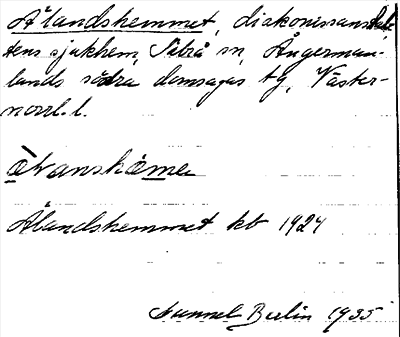 Ålandshemmet, diakonissanstal-
tens sjukhem, Nätrå sn, Ångerman-
lands södra domsagas tg, Väster-
norrl. l.
Ålandshemmet kb 1924
Gunnel Berlin 1935